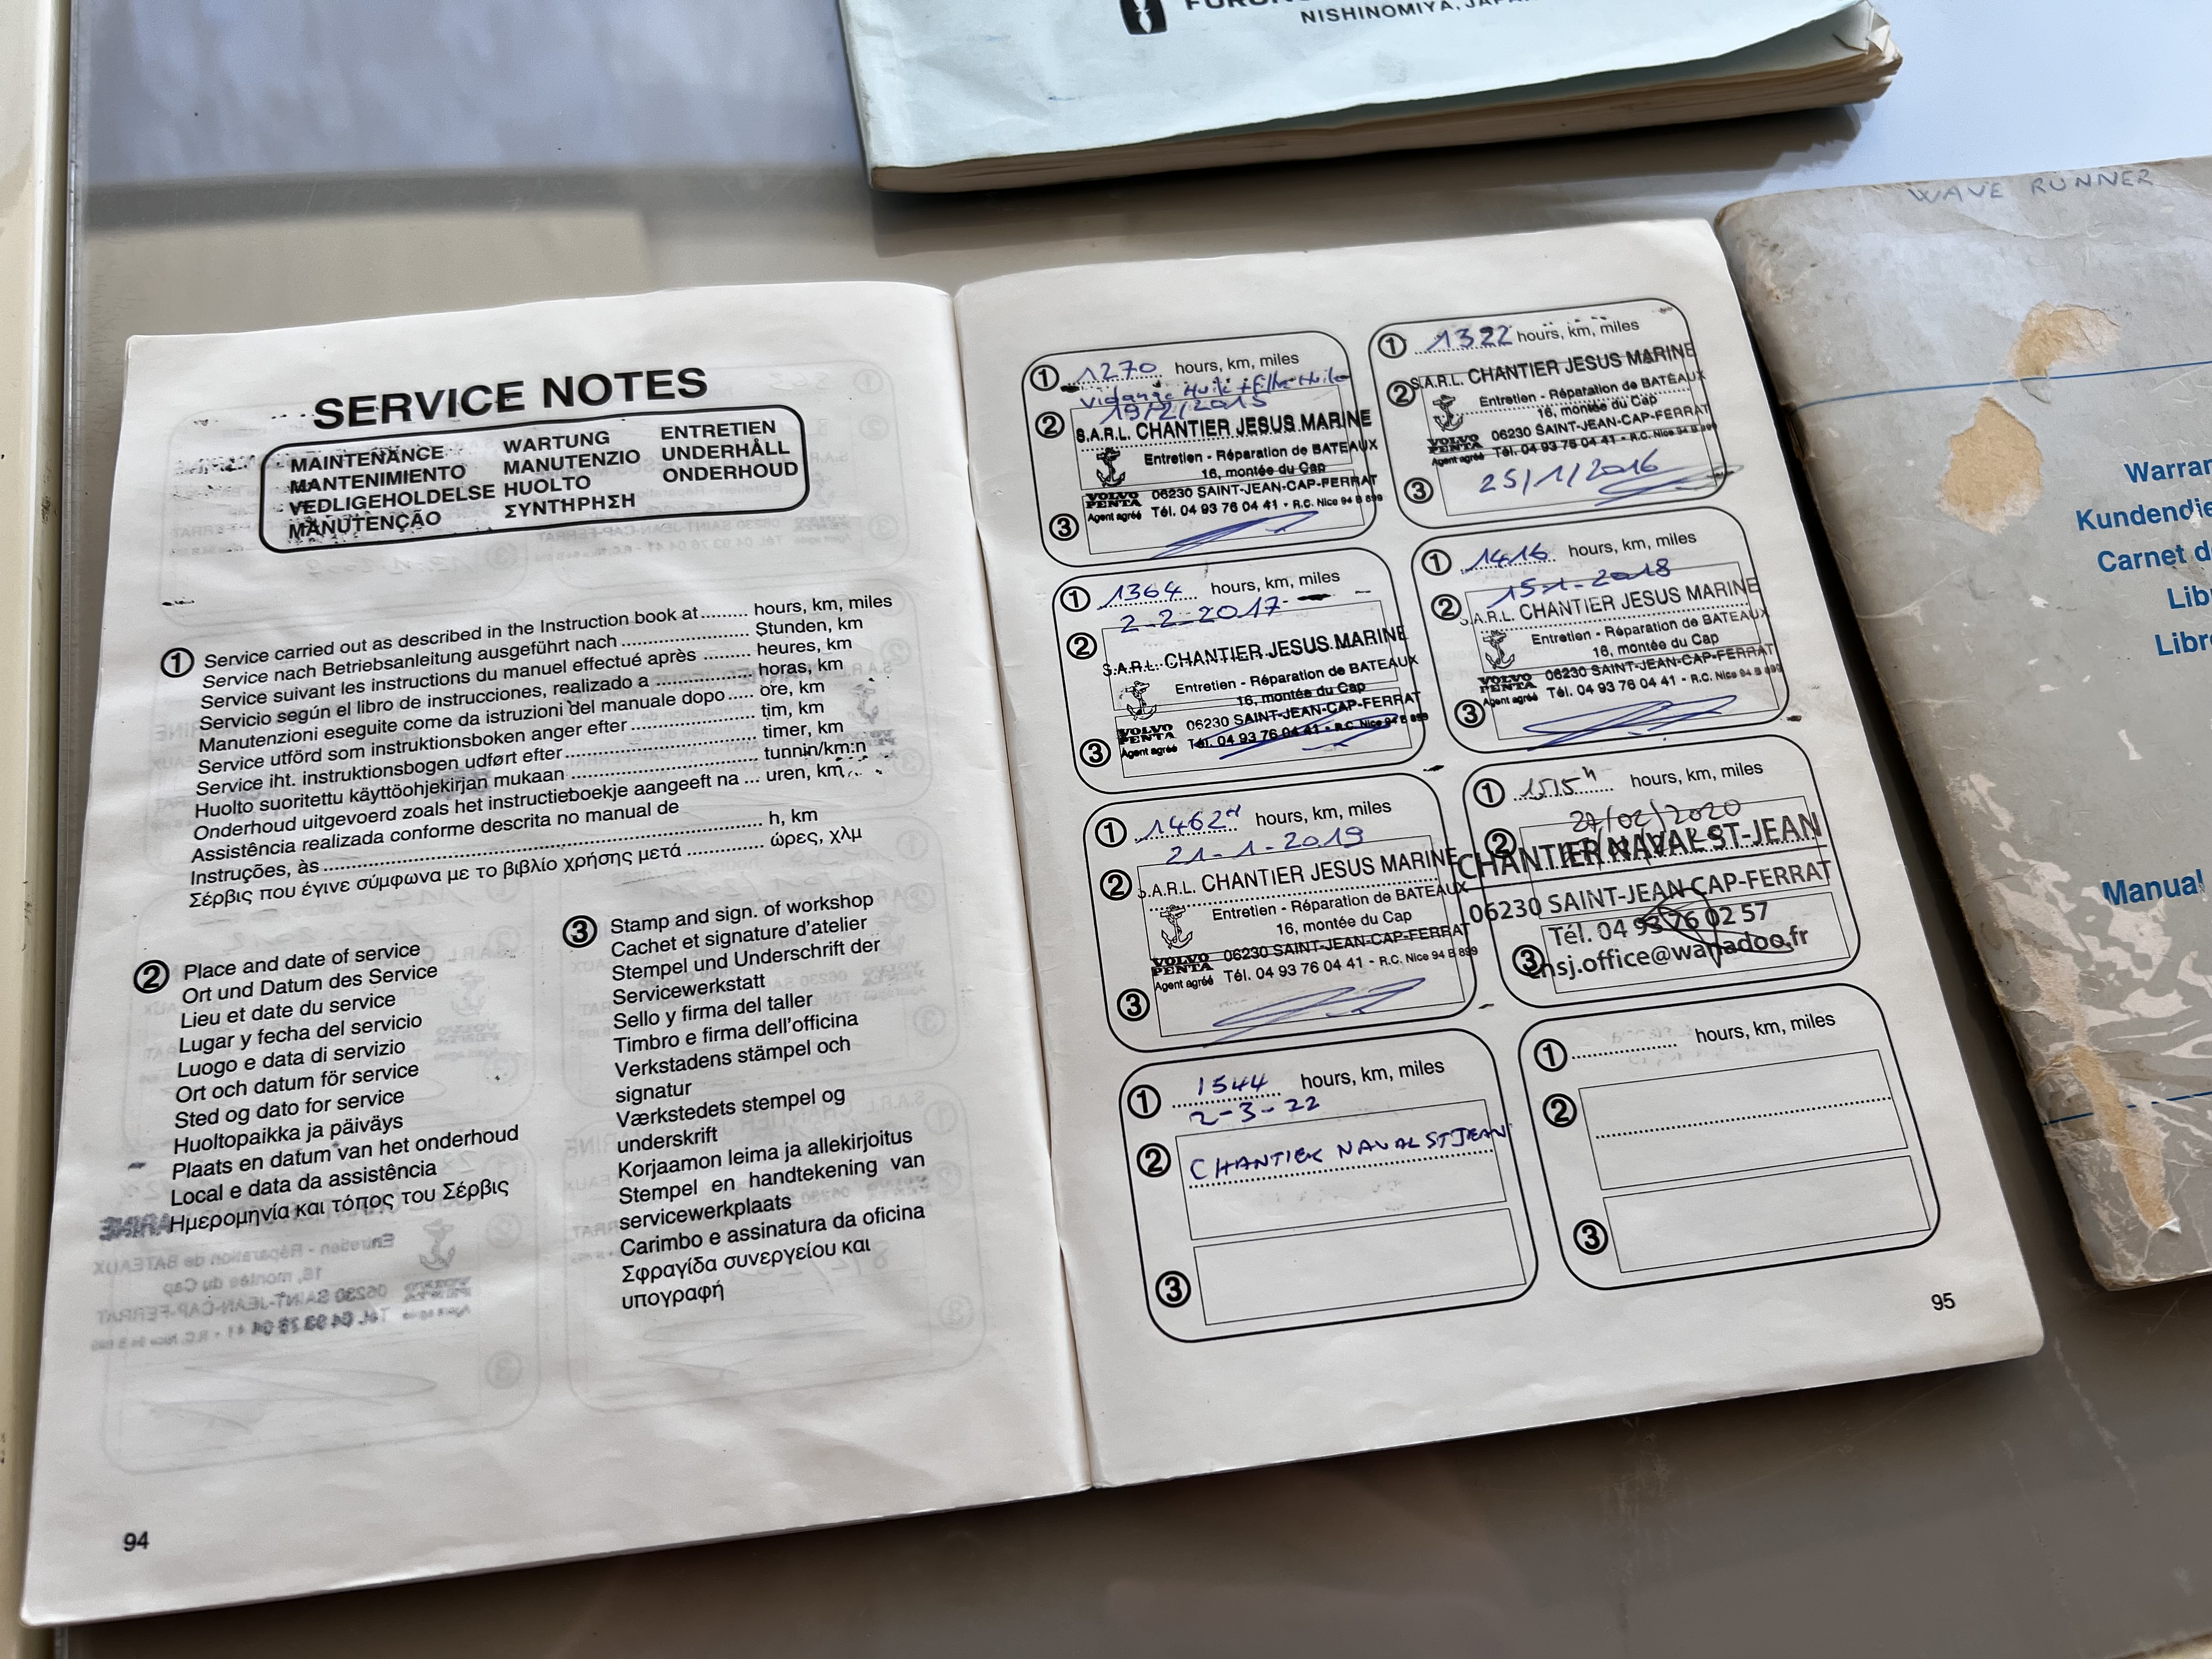 NISHINOMIYA, JAPA
WAVE RUNNER
SERVICE NOTES
MAINTENANCE WARTUNG ENTRETIEN
MANTENIMIENTO MANUTENZIO UNDERHÅLL
VEDLIGEHOLDELSE HUOLTO ONDERHOUD
MANUTENÇÃO ΣΥΝΤΗΡΗΣΗ
① Service carried out as described in the Instruction book at ........ hours, km, miles
Service nach Betriebsanleitung ausgeführt nach ...................... Stunden, km
Service suivant les instructions du manuel effectué après ........ heures, km
Servicio según el libro de instrucciones, realizado a ................. horas, km
Manutenzioni eseguite come da istruzioni del manuale dopo ..... ore, km
Service utförd som instruktionsboken anger efter ..................... tim, km
Service iht. instruktionsbogen udført efter ................................ timer, km
Huolto suoritettu käyttöohjekirjan mukaan ............................... tunnin/km:n
Onderhoud uitgevoerd zoals het instructieboekje aangeeft na ... uren, km
Assistência realizada conforme descrita no manual de
Instruções, às ........................................................................ h, km
Σέρβις που έγινε σύμφωνα με το βιβλίο χρήσης μετά ............. ώρες, χλμ
② Place and date of service
Ort und Datum des Service
Lieu et date du service
Lugar y fecha del servicio
Luogo e data di servizio
Ort och datum för service
Sted og dato for service
Huoltopaikka ja päiväys
Plaats en datum van het onderhoud
Local e data da assistência
Ημερομηνία και τόπος του Σέρβις
③ Stamp and sign. of workshop
Cachet et signature d'atelier
Stempel und Underschrift der
Servicewerkstatt
Sello y firma del taller
Timbro e firma dell'officina
Verkstadens stämpel och
signatur
Værkstedets stempel og
underskrift
Korjaamon leima ja allekirjoitus
Stempel en handtekening van
servicewerkplaats
Carimbo e assinatura da oficina
Σφραγίδα συνεργείου και
υπογραφή
94
① 1270 hours, km, miles
Vidange Huile + Filtre Huile
19/2/2015
② S.A.R.L. CHANTIER JESUS MARINE
Entretien - Réparation de BATEAUX
16, montée du Cap
VOLVO PENTA 06230 SAINT-JEAN-CAP-FERRAT
Agent agréé Tél. 04 93 76 04 41 - R.C. Nice 94 B 899
③
① 1322 hours, km, miles
② S.A.R.L. CHANTIER JESUS MARINE
Entretien - Réparation de BATEAUX
16, montée du Cap
VOLVO PENTA 06230 SAINT-JEAN-CAP-FERRAT
Agent agréé Tél. 04 93 76 04 41 - R.C. Nice 94 B 899
③ 25/1/2016
① 1364 hours, km, miles
2-2-2017
② S.A.R.L. CHANTIER JESUS MARINE
Entretien - Réparation de BATEAUX
16, montée du Cap
VOLVO PENTA 06230 SAINT-JEAN-CAP-FERRAT
Agent agréé Tél. 04 93 76 04 41 - R.C. Nice 94 B 899
③
① 1416 hours, km, miles
15-1-2018
② S.A.R.L. CHANTIER JESUS MARINE
Entretien - Réparation de BATEAUX
16, montée du Cap
VOLVO PENTA 06230 SAINT-JEAN-CAP-FERRAT
Agent agréé Tél. 04 93 76 04 41 - R.C. Nice 94 B 899
③
① 1462 H hours, km, miles
21-1-2019
② S.A.R.L. CHANTIER JESUS MARINE
Entretien - Réparation de BATEAUX
16, montée du Cap
VOLVO PENTA 06230 SAINT-JEAN-CAP-FERRAT
Agent agréé Tél. 04 93 76 04 41 - R.C. Nice 94 B 899
③
① 1515 h hours, km, miles
27/02/2020
② CHANTIER NAVAL ST-JEAN
06230 SAINT-JEAN CAP-FERRAT
Tél. 04 93 76 02 57
③ cnsj.office@wanadoo.fr
① 1544 hours, km, miles
2-3-22
② CHANTIER NAVAL ST JEAN
③
① ................ hours, km, miles
②
③
95
Warran
Kundendie
Carnet d
Lib
Libr
Manual